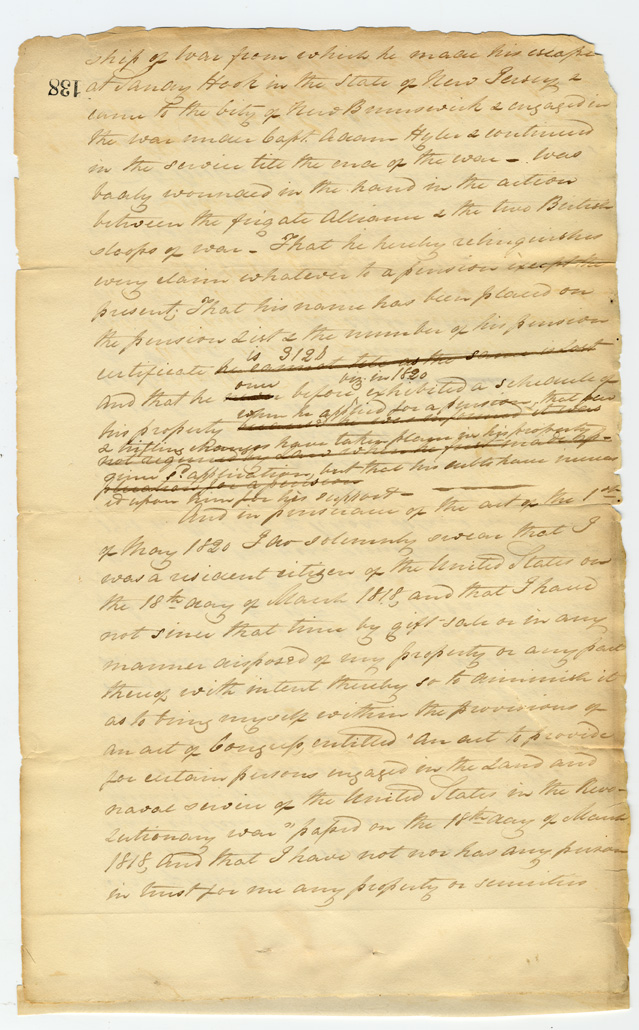 138
ship of War from which he made his escape
at Sandy Hook in the State of New Jersey, &
came to the City of New Brunswick & engaged in
the war under Capt. Adam Hyler & continued
in the service till the end of the war – Was
badly wounded in the hand in the action
between the frigate Alliance & the two British
sloops of war – That he hereby relinquishes
every claim whatever to a pension except the
present; That his name has been placed on
the pension List & the number of his pension
is 3120
certificate he cannot tell as the same is lost
once viz in 1820
And that he before exhibited a schedule of
when he applied for a pension, that few
his property because
& trifling changes have taken place in his property
not
since sd. application, but that his debts have increas
plication for a pension
ed upon him for his support –
And in pursuance of the act of the 1st
of May 1820 I do solemnly swear that I
was a resident citizen of the United States on
the 18th day of March 1818, and that I have
not since that time by gift sale or in any
manner disposed of my property or any part
thereof with intent thereby so to diminish it
as to bring myself within the provisions of
an act of Congress, entitled "An act to provide
for certain persons engaged in the Land and
naval service of the United States in the Revo-
lutionary war" passed on the 18th day of March
1818, And that I have not nor has any person
in trust for me any property or securities